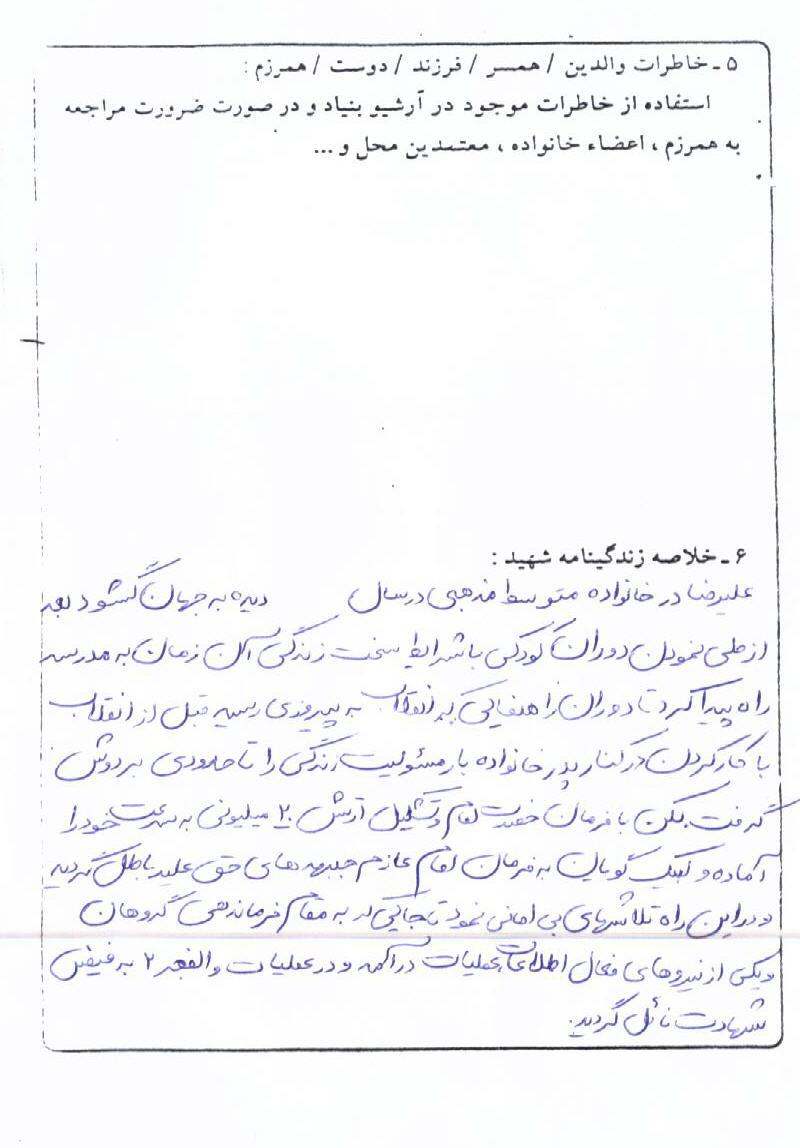 ۵ ـ خاطرات والدین / همسر / فرزند / دوست / همرزم :
استفاده از خاطرات موجود در آرشیو بنیاد و در صورت ضرورت مراجعه
به همرزم ، اعضاء خانواده ، معتمدین محل و ...
۶ ـ خلاصه زندگینامه شهید :
علیرضا در خانواده متوسط مذهبی در سال دیده به جهان گشود بعد
از طی نمودن دوران کودکی با شرایط سخت زندگی آن زمان به مدرسه
راه پیدا کرد تا دوران راهنمایی که انقلاب به پیروزی رسید قبل از انقلاب
با کار کردن در کنار پدر خانواده بار مسئولیت زندگی را تا حدودی بر دوش
گرفت لکن با فرمان حضرت امام و تشکیل ارتش ۲۰ میلیونی به سرعت خود را
آماده و لبیک گویان به فرمان امام عازم جبهه های حق علیه باطل گردید
و در این راه تلاشهای بی امانی نمود تا جائی که به مقام فرماندهی گروهان
و یکی از نیروهای فعال اطلاعات عملیات درآمد و در عملیات والفجر ۲ به فیض
شهادت نائل گردید.